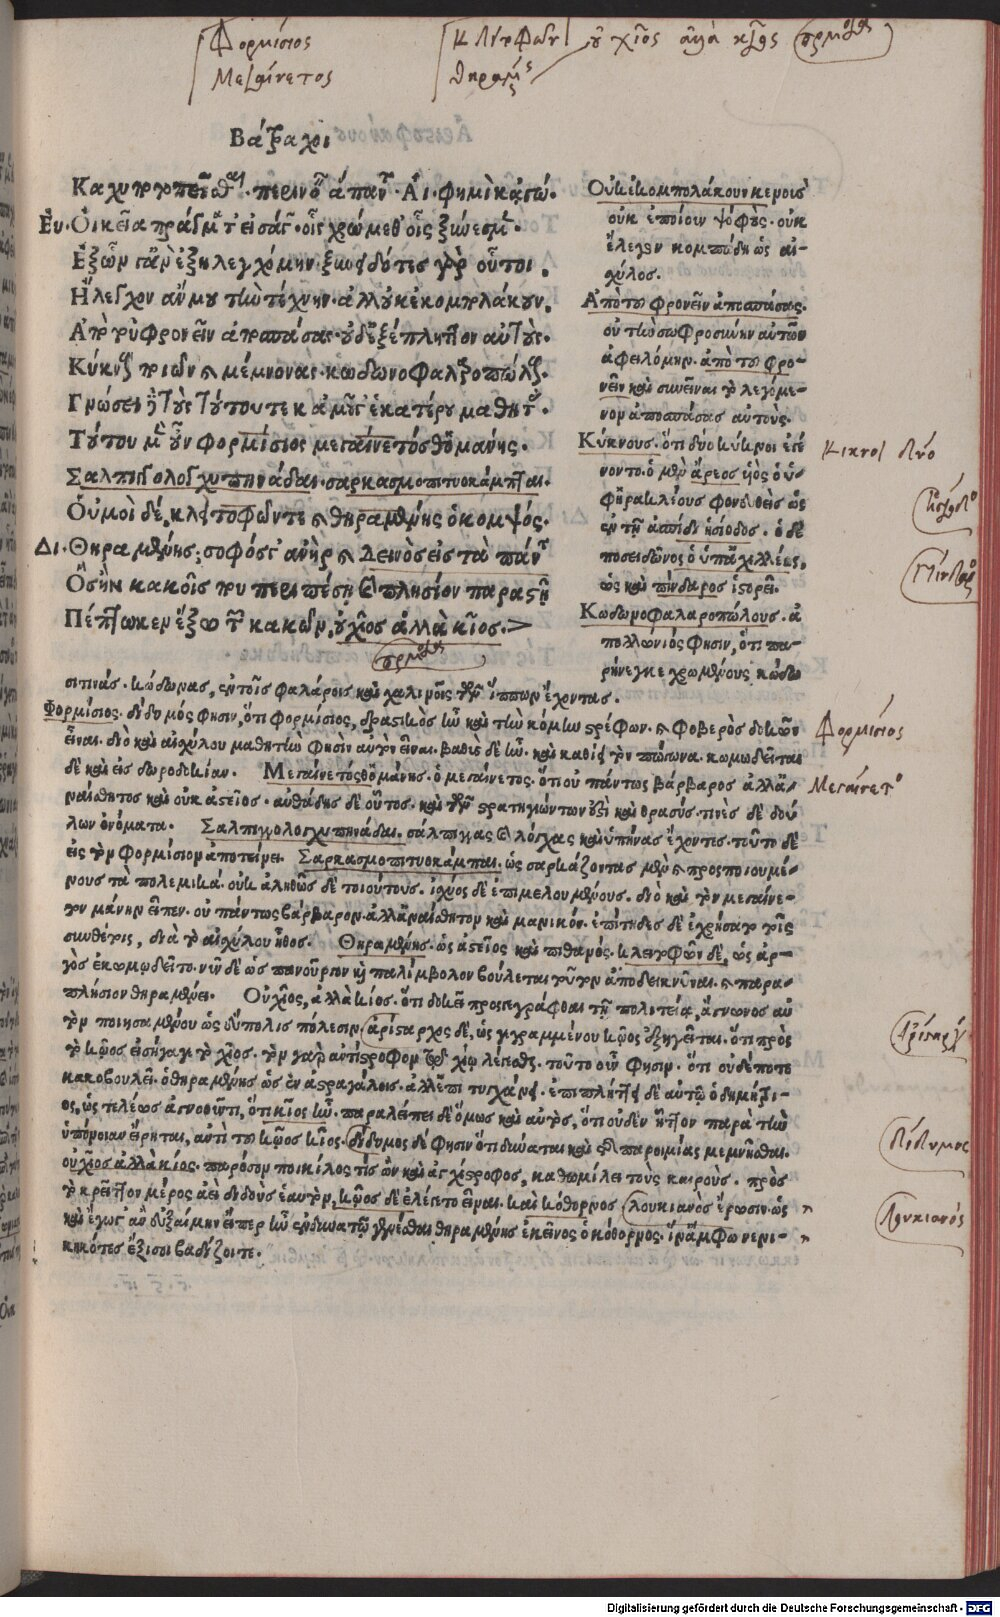 Φορμίσιος
Μεγαίνετος
Κλειτοφῶν
θηραμένης
οὐ χῖος ἀλλὰ κῖος
Βάτραχοι
Κἀχυποτοπεῖσθαι. περινοεῖν ἅπαντα. Αἰ. φημὶ κἀγώ.
Εὐ. Οἰκεῖα πράγματ' εἰσάγων. οἷς χρώμεθ' οἷς ξύνεσμεν.
Ἐξ ὧν γ' ἂν ἐξηλεγχόμην. ξυνειδότες γὰρ οὗτοι.
Ἤλεγχον ἄν μου τὴν τέχνην. ἀλλ' οὐκ ἐκομπολάκουν.
Ἀπὸ τοῦ φρονεῖν ἀποσπάσας. οὐδ' ἐξέπληττον αὐτούς.
Κύκνους ποιῶν καὶ μέμνονας κωδωνοφαλαροπώλους.
Γνώσει δὲ τοὺς τούτου τε κἀμοὺς ἑκατέρου μαθητάς.
Τούτου μὲν οὖν φορμίσιος μεγαίνετός θ' ὁ μανής.
Σαλπιγγολογχυπηνάδαι. σαρκασμοπιτυοκάμπται.
Οὑμοὶ δὲ, κλειτοφῶν τε καὶ θηραμένης ὁ κομψός.
Δι. Θηραμένης; σοφός γ' ἀνὴρ καὶ δεινὸς εἰς τὰ πάντα
Ὃς ἢν κακοῖς που περιπέσῃ καὶ πλησίον παραστῇ
Πέπτωκεν ἔξω τῶν κακῶν, οὐ χῖος ἀλλὰ κῖος.
Οὐκ ἐκομπολάκουν κενοῖς
οὐκ ἐποίουν ψόφους. οὐκ
ἔλεγον κομπώδη ὡς αἰ-
χύλος.
Ἀπὸ τοῦ φρονεῖν ἀποσπάσας.
οὐ τὴν σωφροσύνην αὐτῶν
ἀφειλόμην. ἀπὸ τοῦ φρο-
νεῖν καὶ συνεῖναι τὸ λεγόμε-
νον ἀποσπάσας αὐτούς.
Κύκνους. ὅτι δύο κύκνοι ἐγέ
νοντο. ὁ μὲν ἄρεος υἱὸς ὁ ὑ-
φ' ἡρακλέους φονευθεὶς ὡς
ἐν τῇ ἀσπίδι ἡσίοδος. ὁ δὲ
ποσειδῶνος ὁ ὑπ' ἀχιλλέως,
ὡς καὶ πίνδαρος ἱστορεῖ.
Κωδωνοφαλαροπώλους. ἀ
πολλώνιός φησιν, ὅτι πα-
ρήνεγκε χρωμένους κώδω
Κικνοι δύο
Πίνδαρος
σι τινάς. κώδωνας, ἐν τοῖς φαλάροις καὶ χαλινοῖς τῶν ἵππων ἔχοντας.
Φορμίσιος. δίδυμός φησιν, ὅτι φορμίσιος, δραστικὸς ἦν καὶ τὴν κόμην τρέφων. καὶ φοβερὸς δοκῶν
εἶναι. διὸ καὶ αἰσχύλου μαθητὴν φησὶν αὐτὸν εἶναι. βαθὺς δὲ ἦν. καὶ καθίει τὸν πώγωνα. κωμωδεῖται
δὲ καὶ εἰς δωροδοκίαν. Μεγαίνετός θ' ὁ μάνης. ὁ μεγαίνετος. ὅτι οὐ πάντως βάρβαρος ἀλλ' ἀ-
ναίσθητος καὶ οὐκ ἀστεῖος. αὐθάδης δὲ οὗτος. καὶ τῶν στρατηγιώντων ἐστὶ καὶ θρασύς. τινὲς δὲ δού
λων ὀνόματα. Σαλπιγγολογχυπηνάδαι. σάλπιγγας καὶ λόγχας καὶ ὑπήνας ἔχοντες. τοῦτο δὲ
εἰς τὸν φορμίσιον ἀποτείνει. Σαρκασμοπιτυοκάμπται. ὡς σαρκάζοντας μὲν καὶ προσποιουμέ-
νους τὰ πολεμικά. οὐκ ἀληθῶς δὲ τοιούτους. ἰσχύος δὲ ἐπιμελουμένους. διὸ καὶ τὸν μεγαίνε-
τον μάνην εἶπεν. οὐ πάντως βάρβαρον. ἀλλ' ἀναίσθητον καὶ μανικόν. ἐπίτηδες δὲ ἐχρήσατο ταῖς
συνθέσεσι, διὰ τὸ αἰσχύλου ἦθος. Θηραμένης. ὡς ἀστεῖος καὶ πιθανός. κλειτοφῶν δὲ, ὡς ἀρ-
γὸς ἐκωμωδεῖτο. νῦν δὲ ὡς πανοῦργον ἢ παλίμβολον βούλεται τοῦτον ἀποδεικνῦναι. καὶ παρα-
πλήσιον θηραμένει. Οὐ χῖος, ἀλλὰ κίος. ὅτι δοκεῖ προσγεγράφθαι τῇ πολιτείᾳ, ἅγνωνος αὐ
τὸν ποιησαμένου ὡς εὔπολις πόλεσιν. ἀρίσταρχος δὲ, ὡς γεγραμμένου κῷος ἐξηγεῖται. ὅτι πρὸς
τὸ κῷος εἰσήγαγε τὸ χῖος. τὸν γὰρ ἀντίστροφον τῷ χίῳ λέγεσθαι. τοῦτο οὖν φησιν. ὅτι οὐδέποτε
κακοβουλεῖ. ὁ θηραμένης ὡς ἐν ἀστραγάλοις. ἀλλ' ἐπιτυγχάνει. ἐπιπλήττει δὲ αὐτῷ ὁ δημήτρι-
ος, ὡς τελέως ἀγνοοῦντι, ὅτι κῖος ἦν. παραλείπει δὲ ὅμως καὶ αὐτὸς, ὅτι οὐδὲν ἧττον παρὰ τὴν
ὑπόνοιαν εἴρηται, ἀντὶ τοῦ κῷος κῖος. δίδυμος δέ φησιν ὅτι δύναται καὶ παροιμίας μεμνῆσθαι.
οὐ χῖος ἀλλὰ κίος. παρόσον ποικίλος τίς ὢν καὶ ἀγχίστροφος, καθωμίλει τοὺς καιρούς. πρὸς
τὸ κρεῖττον μέρος ἀεὶ διδοὺς ἑαυτὸν, κῷος δὲ ἐλέγετο εἶναι. καὶ κόθορνος λουκιανὸς ἔρωσιν. ὡς
καὶ ἔγωγ' ἂν εὐξαίμην εἴπερ ἦν ἐν δυνατῷ γενέσθαι θηραμένης ἐκεῖνος ὁ κόθορνος. ἵν' ἄμφω νενι-
κηκότες ἔξισου βαδίζοιτε.
Φορμίσιος
Μεγαίνετος
Ἀρίσταρχ
δίδυμος
Λουκιανός
Digitalisierung gefördert durch die Deutsche Forschungsgemeinschaft - DFG